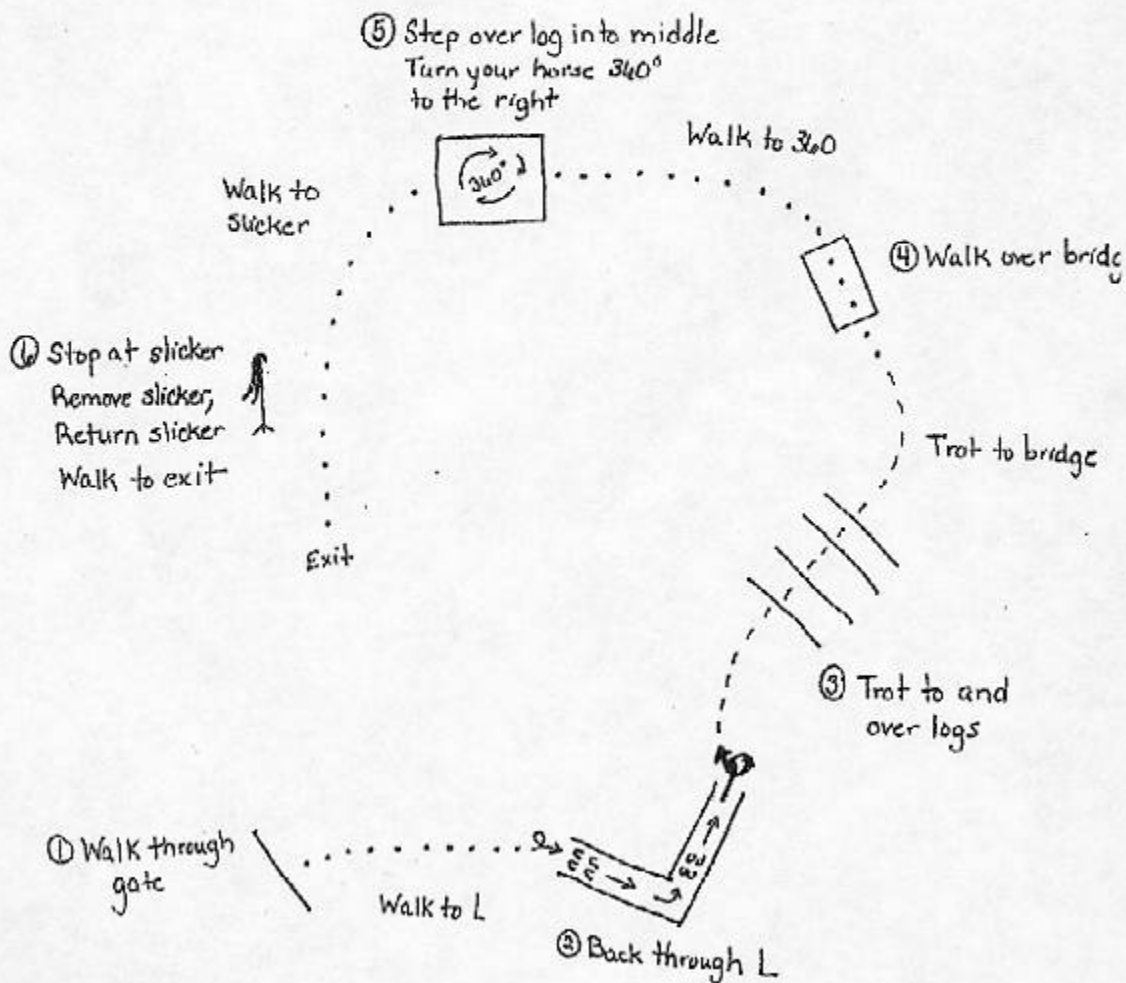 ⑤ Step over log into middle
Turn your horse 360°
to the right
Walk to 360
360°
Walk to
slicker
④ Walk over bridg
⑥ Stop at slicker
Remove slicker,
Return slicker
Walk to exit
Trot to bridge
Exit
③ Trot to and
over logs
① Walk through
gate
Walk to L
② Back through L